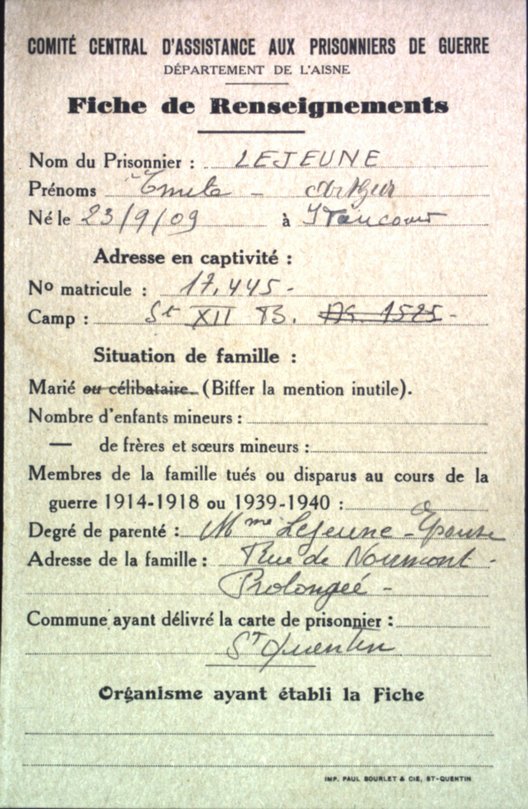 COMITÉ CENTRAL D'ASSISTANCE AUX PRISONNIERS DE GUERRE
DÉPARTEMENT DE L'AISNE
Fiche de Renseignements
Nom du Prisonnier : LEJEUNE
Prénoms Emile - Arthur
Né le 23/9/09 à Itancourt
Adresse en captivité :
No matricule : 17.445 -
Camp : St XII B. AK. 1525 -
Situation de famille :
Marié ou célibataire. (Biffer la mention inutile).
Nombre d'enfants mineurs :
— de frères et sœurs mineurs :
Membres de la famille tués ou disparus au cours de la
guerre 1914-1918 ou 1939-1940 :
Degré de parenté : Mme Lejeune - Epouse
Adresse de la famille : Rue de -
Prolongée -
Commune ayant délivré la carte de prisonnier :
St Quentin
Organisme ayant établi la Fiche
IMP. PAUL BOURLET & CIE, ST-QUENTIN